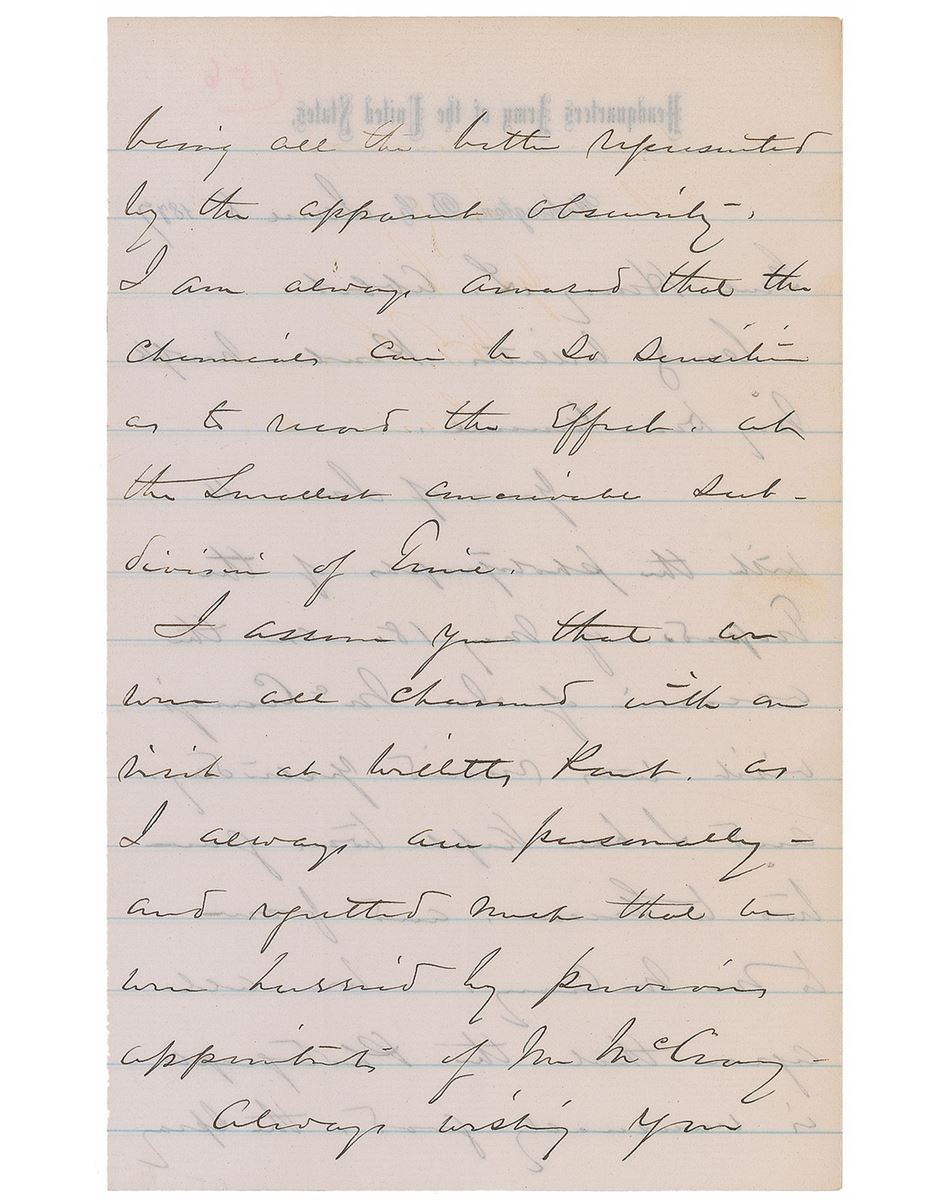 being all the better represented
by the apparent obscurity.
I am always amazed that the
chemicals can be so sensitive
as to record the Effect, at
the Smallest conceivable sub-
division of time.
I assure you that we
were all charmed with our
visit at Willetts Point, as
I always am personally -
and regretted much that we
were hurried by previous
appointmts of Mr McCrary -
Always wishing you